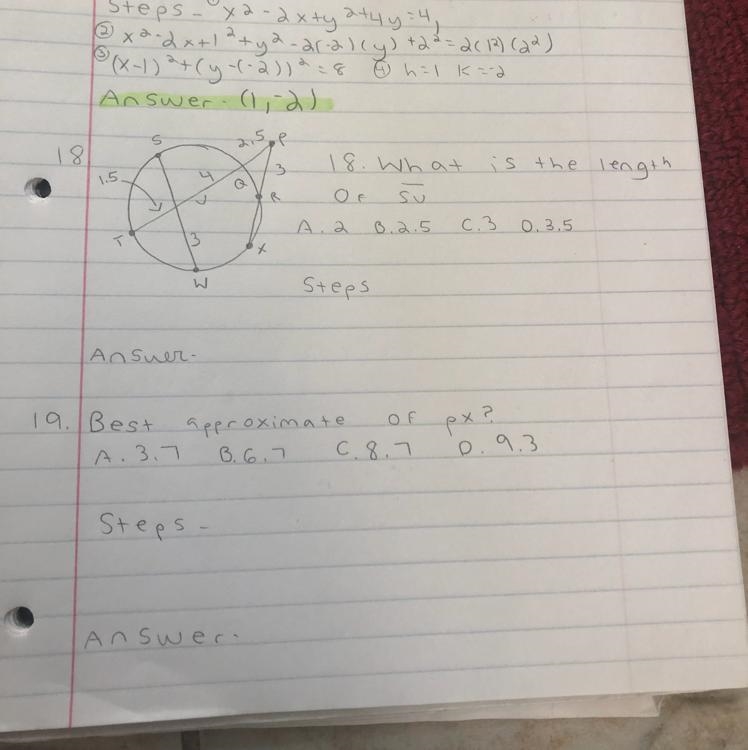 Steps - ① x2 - 2x + y2 + 4y = 4,
② x² - 2x + 1² + y² - 2(-2)(y) + 2² = 2(1²)(2²)
③ (x-1)² + (y-(-2))² = 8 ④ h=1 k=-2
Answer - (1,-2)
18
S
2.5 P
3
1.5
4
Q
R
U
T
3
X
W
18. What is the length
OF SU
A. 2 B. 2.5 C. 3 D. 3.5
Steps
Answer -
19. Best approximate OF px?
A. 3.7 B. 6.7 C. 8.7 D. 9.3
Steps -
Answer -